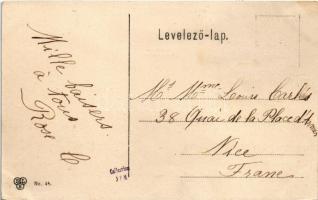 Levelező-lap.
Mille baisers
à tous
Rose C
Mr Mme Louis
38 Quai de la Place d'Armes
Nice
Franc
Collection
No. 44.